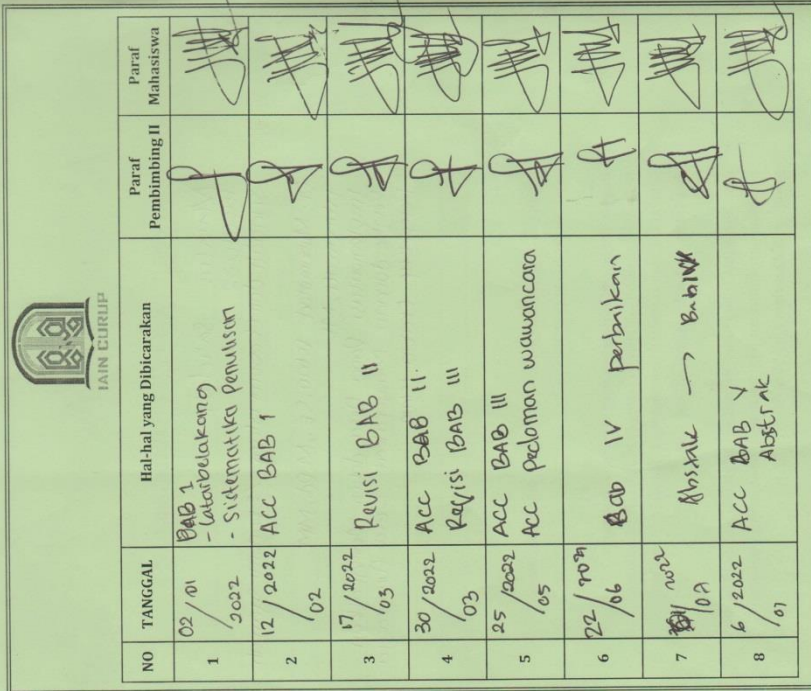 IAIN CURUP
NO TANGGAL Hal-hal yang Dibicarakan Paraf Pembimbing II Paraf Mahasiswa
1 02/01/2022 BAB 1
- Latarbelakang
- Sistematika Penulisan
2 12/2022/02 ACC BAB 1
3 17/2022/03 Revisi BAB II
4 30/2022/03 ACC BAB II.
Revisi BAB III
5 25/2022/05 ACC BAB III
ACC Pedoman wawancara
6 22/06 Bab IV perbaikan
7 2022 →
8 6/2022 ACC BAB V
Abstrak